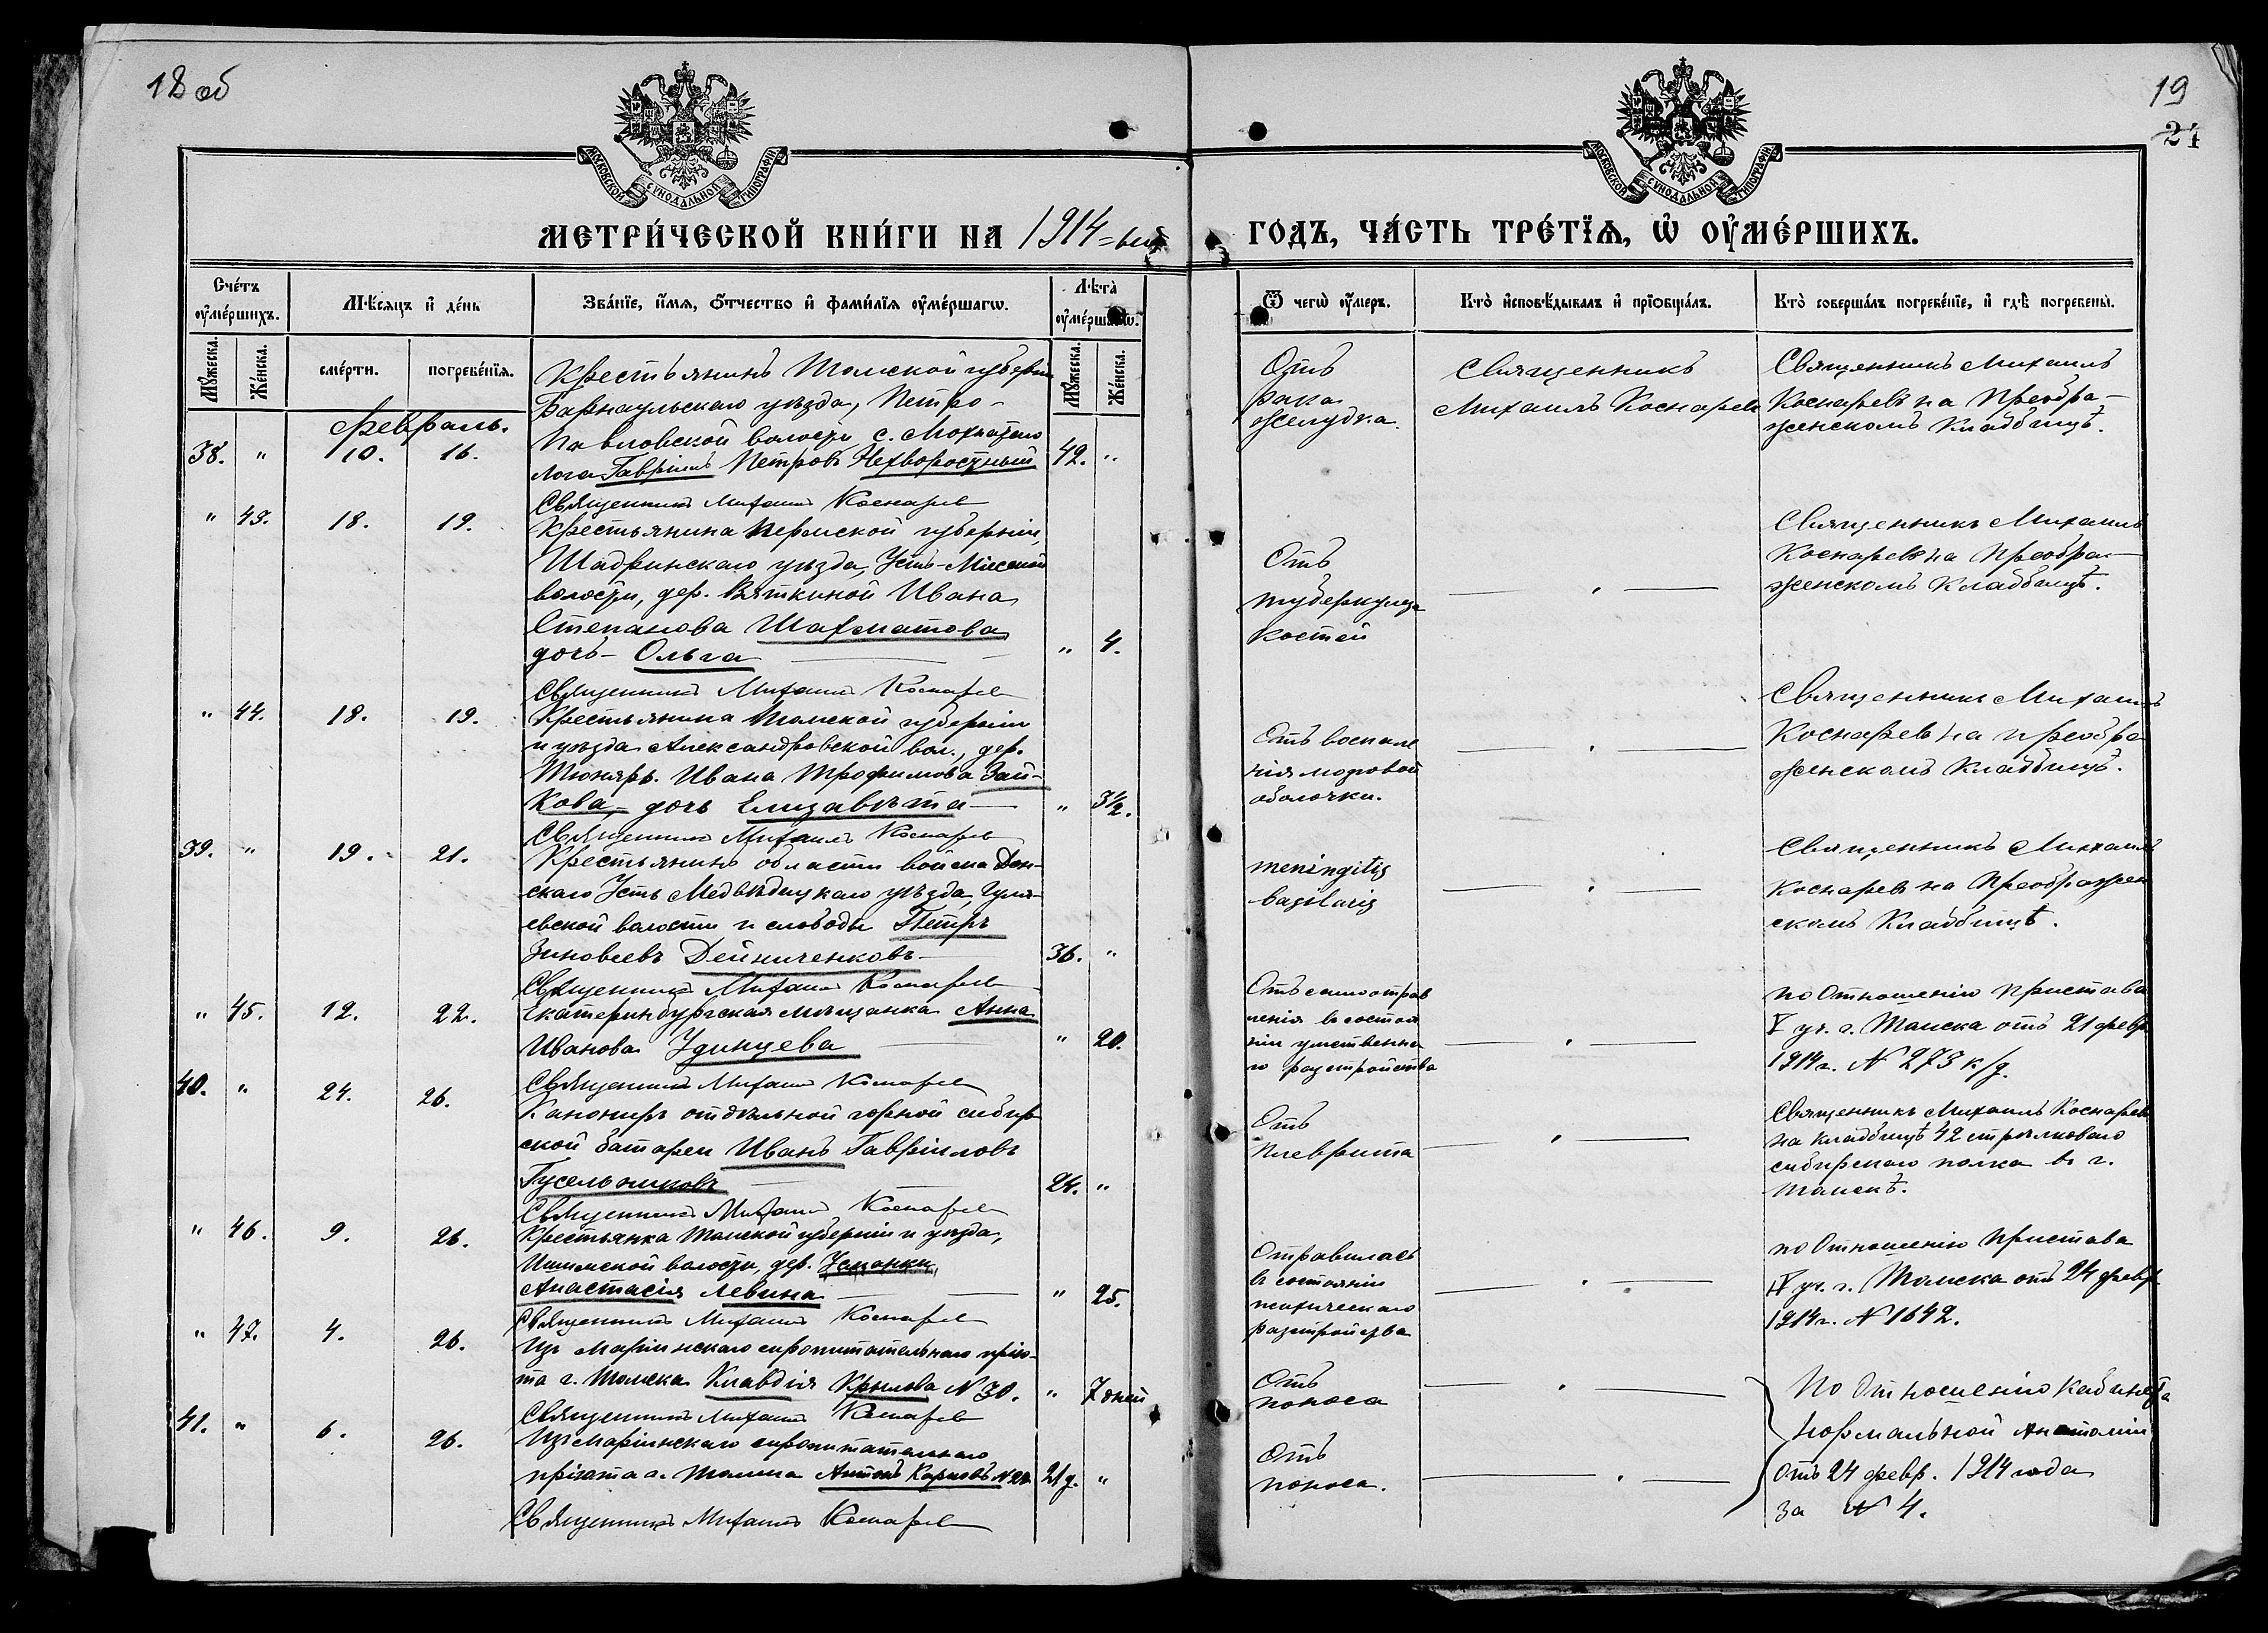 18 об
19
24
МОСКОВСКОЙ СѴНОДАЛЬНОЙ ТИПОГРАФІИ
МОСКОВСКОЙ СѴНОДАЛЬНОЙ ТИПОГРАФІИ
МЕТРИ́ЧЕСКОЙ КНИ́ГИ НА 1914=ый
ГОДЪ, ЧА́СТЬ ТРЕ́ТЇѦ, Ѡ ОУМЕ́РШИХЪ.
Сче́тъ оумершихъ.
Мѣсяцъ и де́нь
Зва́нїе, и́мѧ, ѻ҆́тчество и фами́лїѧ оумершагѡ.
Лѣта̀ оумершагѡ.
Мужеска.
Же́нска.
сме́рти.
погребе́нїѧ.
Мужеска.
Же́нска.
Ѿ чегѡ̀ оумеръ.
Кто̀ исповѣдывалъ и прїобща́лъ.
Кто̀ соверша́лъ погребе́нїе, и гдѣ̀ погребены̀.
Февраль.
38. " 10. 16.
Крестьянинъ Томской губерн
Барнаульскаго уѣзда, Петро-
павловской волости, с. Мохнатаго
лога Гавріилъ Петровъ Нехворостный
42. "
Отъ
рака
желудка.
Священникъ
Михаилъ Коснарев
Священникъ Михаилъ
Коснаревъ на Преобра-
женскомъ Кладбищѣ.
Священникъ Михаилъ Коснарев
" 43. 18. 19.
Крестьянина Пермской губерніи,
Шадринскаго уѣзда, Усть-Міасской
волости, дер. Вяткиной Ивана
Степанова Шахматова
дочь - Ольга
" 4.
Отъ
туберкулеза
костей
Священникъ Михаилъ
Коснаревъ на Преобра-
женскомъ Кладбищѣ.
Священникъ Михаилъ Коснарев
" 44. 18. 19.
Крестьянина Томской губерніи
и уѣзда Александровской вол., дер.
Тюкяръ. Ивана Трофимова Зай-
кова, дочь Елизавѣта
" 3½.
Отъ воспале
нія мозговой
оболочки.
Священникъ Михаилъ
Коснаревъ на преобра
женскомъ Кладбищѣ.
Священникъ Михаилъ Коснарев
39. " 19. 21.
Крестьянинъ области войска Дон-
скаго Усть Медвѣдицкаго уѣзда, Гуля-
евской волости и слободы Петръ
Зиновеевъ Дейниченковъ
36. "
meningitis
basilaris
Священникъ Михаилъ
Коснаревъ на Преображен
скомъ Кладбищѣ.
Священникъ Михаилъ Коснарев
" 45. 12. 22.
Екатеринбургская мѣщанка Анна
Иванова Удинцева
" 20.
Отъ самоотрав
ленія въ состоя
ніи умственна
го разстройства
по Отношенію пристава
V уч. г. Томска отъ 21 февр
1914г. № 273 к/д.
Священникъ Михаилъ Коснарев
40. " 24. 26.
Канониръ отдѣльной горной сибир
ской батареи Иванъ Гавріиловъ
Гусельниковъ
24. "
Отъ
Плеврита
Священникъ Михаилъ Коснаревъ
на кладбищѣ 42 стрѣлковаго
сибирскаго полка въ г.
Томскѣ.
Священникъ Михаилъ Коснарев
" 46. 9. 26.
Крестьянка Томской губерніи и уѣзда,
Ишимской волости, дер. Усманки
Анастасія Левина
" 25.
Отравилась
въ состояніи
психическаго
разстройства
по Отношенію Пристава
IV уч. г. Томска отъ 24 февр
1914г. № 1642.
Священникъ Михаилъ Коснарев
" 47. 4. 26.
Изъ Маріинскаго сиропитательнаго прію-
та г. Томска Клавдія Крылова № 30.
" 7 дней
Отъ
поноса
По Отношенію Кабинета
нормальной Анатоміи
отъ 24 февр. 1914 года
за № 4.
Священникъ Михаилъ Коснарев
41. " 6. 26.
Изъ Маріинскаго сиропитательнаго
пріюта г. Томска Антонъ Карповъ № 24
21 д. "
Отъ
поноса.
Священникъ Михаилъ Коснарев